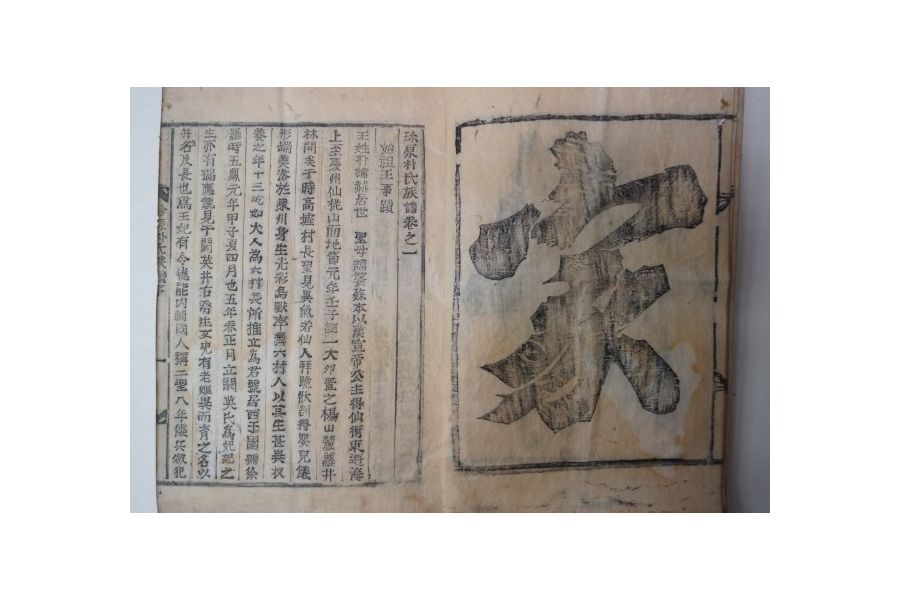 家
珍原朴氏族譜卷之一
始祖王事蹟
王姓朴諱赫居世 聖母諱婆蘇本以漢宣帝公主得仙術東遊海
上至慶州仙桃山而地節元年壬子誕一大卵置之楊山麓蘿井
林間矣于時高墟村長望見異氣若仙人拜跪狀剖得嬰兒儀
形端美浴於東川身生光彩鳥獸率舞六村人以其生甚異收
養之年十三岐如大人為六村長所推立為君號居西干國號徐
羅時五鳳元年甲子夏四月也五年春正月立閼英氏為妃妃之
生亦有瑞龍見于閼英井右脇生女兒有老嫗異而育之名以
井名及長也為王妃有令德能內輔國人稱二聖八年倭兵欲犯